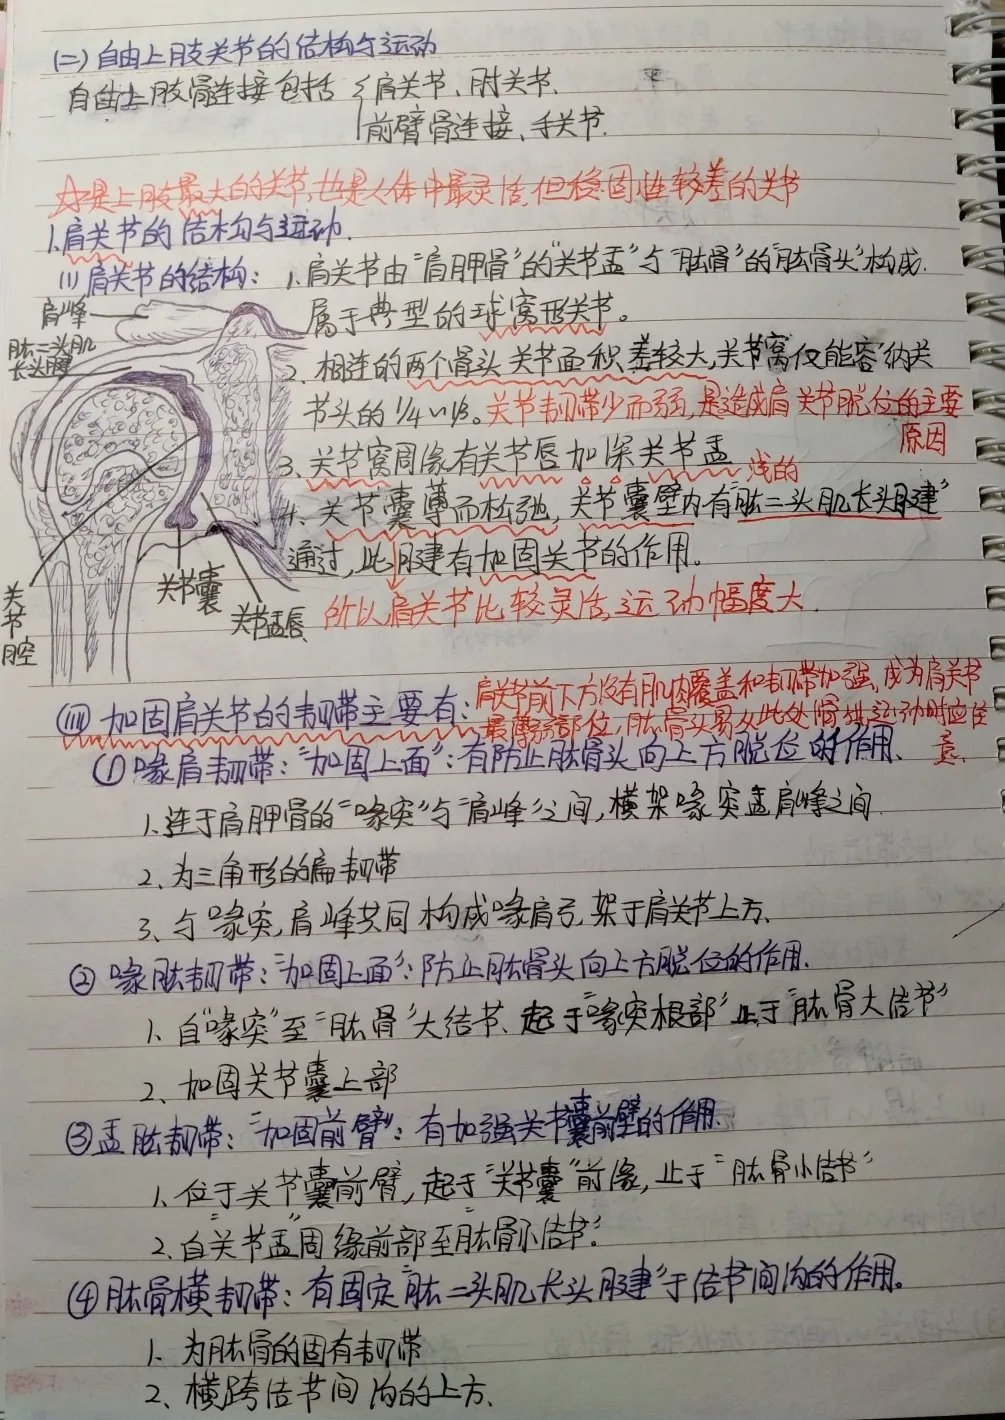 (二)自由上肢关节的结构与运动
自由上肢骨连接包括{肩关节、肘关节、
前臂骨连接、手关节.
☆是上肢最大的关节,也是人体中最灵活,但稳固性较差的关节
1.肩关节的结构与运动.
(1)肩关节的结构:1.肩关节由"肩胛骨"的"关节盂"与"肱骨"的"肱骨头"构成.
属于典型的球窝形关节。
2.相连的两个骨头关节面积差较大,关节窝仅能容纳关
节头的1/4~1/3。关节韧带少而弱,是造成肩关节脱位的主要
原因
3.关节窝周缘有关节唇加深关节盂
浅的
4.关节囊薄而松弛,关节囊壁内有"肱二头肌长头腱"
通过,此腱有加固关节的作用。
所以肩关节比较灵活,运动幅度大.
肩峰
肱二头肌
长头腱
关节腔
关节囊
关节盂唇
肩关节前下方没有肌肉覆盖和韧带加强,成为肩关节
最薄弱部位,肱骨头易从此处滑出运动时应注
意.
(III)加固肩关节的韧带主要有:
①喙肩韧带:"加固上面":有防止肱骨头向上方脱位的作用.
1.连于肩胛骨的"喙突"与"肩峰"之间,横架喙突盂肩峰之间
2、为三角形的扁韧带
3、与喙突,肩峰共同构成喙肩弓,架于肩关节上方.
②喙肱韧带:"加固上面":防止肱骨头向上方脱位的作用.
1.自"喙突"至"肱骨"大结节、起于"喙突根部"止于"肱骨大结节"
2、加固关节囊上部
③盂肱韧带:"加固前臂":有加强关节囊前壁的作用.
1.位于关节囊前臂,起于"关节囊"前缘,止于"肱骨小结节"
2、自"关节盂"周缘前部至"肱骨小结节".
④肱骨横韧带:有固定"肱二头肌长头腱"于结节间沟的作用。
1.为肱骨的固有韧带
2.横跨结节间沟的上方.